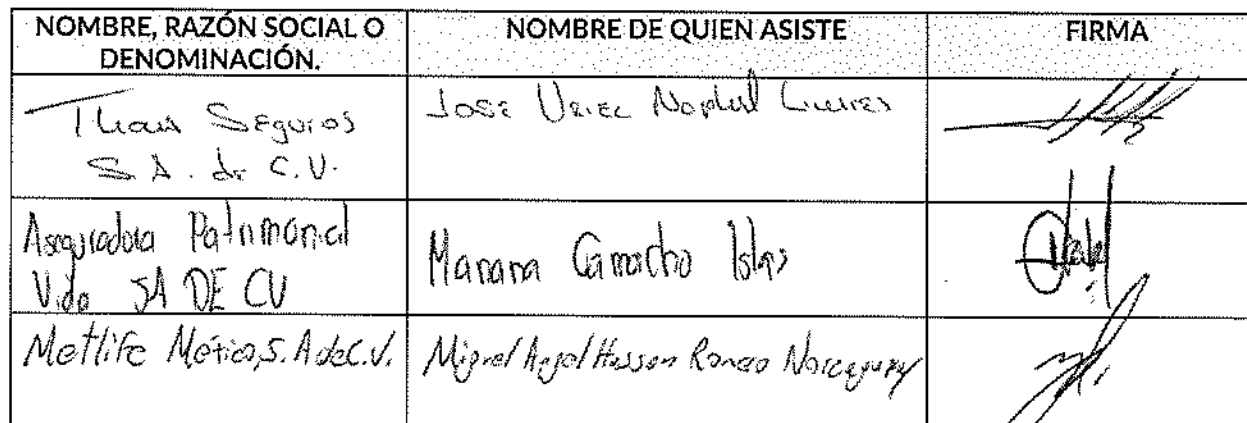 NOMBRE, RAZÓN SOCIAL O
DENOMINACIÓN.
NOMBRE DE QUIEN ASISTE
FIRMA
Thona Seguros
S.A. de C.V.
Jose Uriel
Aseguradora Patrimonial
Vida SA DE CV
Mariana Camacho Islas
Metlife México, S. A de C.V.
Miguel Angel Hassan Romero